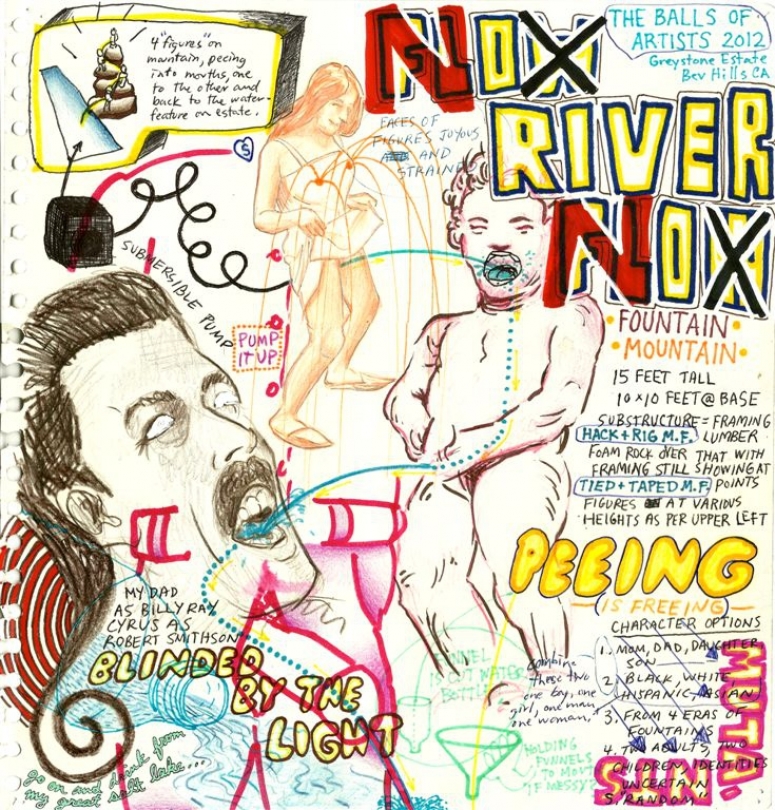 4 "figures" on
mountain, peeing
into mouths, one
to the other and
back to the water-
feature on estate.
NOX
RIVER
NOX
THE BALLS OF
ARTISTS 2012
Greystone Estate
Bev Hills CA
FACES OF
FIGURES JOYOUS
AND
STRAINED
$
SUBMERSIBLE PUMP
PUMP
IT UP
FOUNTAIN
MOUNTAIN
15 FEET TALL
10 x 10 FEET @ BASE
SUBSTRUCTURE = FRAMING
HACK + RIG M.F. LUMBER
FOAM ROCK OVER THAT WITH
FRAMING STILL SHOWING AT
TIED + TAPED M.F. POINTS
FIGURES AT VARIOUS
HEIGHTS AS PER UPPER LEFT
PEEING
(IS FREEING)
CHARACTER OPTIONS
1. MOM, DAD, DAUGHTER
SON
2. BLACK, WHITE,
HISPANIC, ASIAN
3. FROM 4 ERAS OF
FOUNTAINS
4. TWO ADULTS, TWO
CHILDREN, IDENTITIES
UNCERTAIN
5. "RANDOM"
MY DAD
AS BILLY RAY
CYRUS AS
ROBERT SMITHSON
BLINDED
BY THE
LIGHT
go on and drink from
my great salt lake....
FUNNEL
IS CUT WATER
BOTTLE
combine
these two
one boy, one
girl, one man
one woman,
HOLDING
FUNNELS
TO MOUTH
IF MESSY?